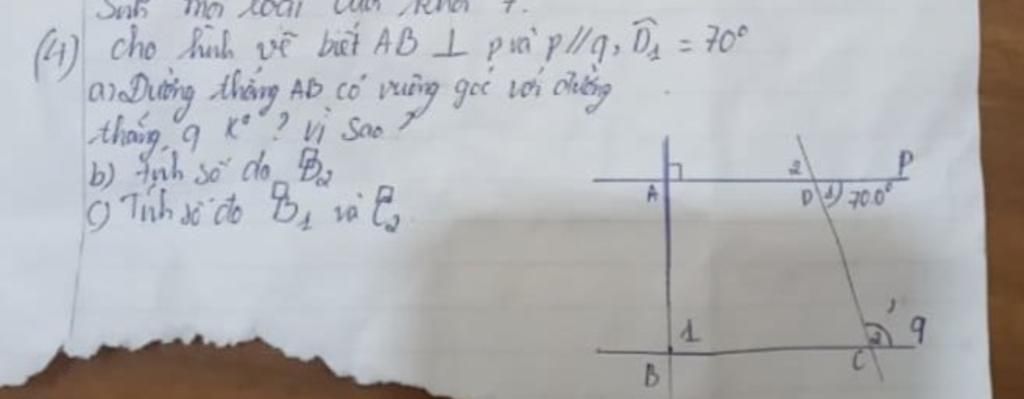 Sinh mỗi loài của khối 7.
(4) cho hình vẽ biết AB ⊥ p và p // q, D̂₁ = 70°
a) Đường thẳng AB có vuông góc với đường
thẳng q K° ? vì sao ?
b) tính số đo D̂₂
c) Tính số đo B̂₁ và Ĉ₂
2 P
A D 1 70.0°
1 2 q
B C